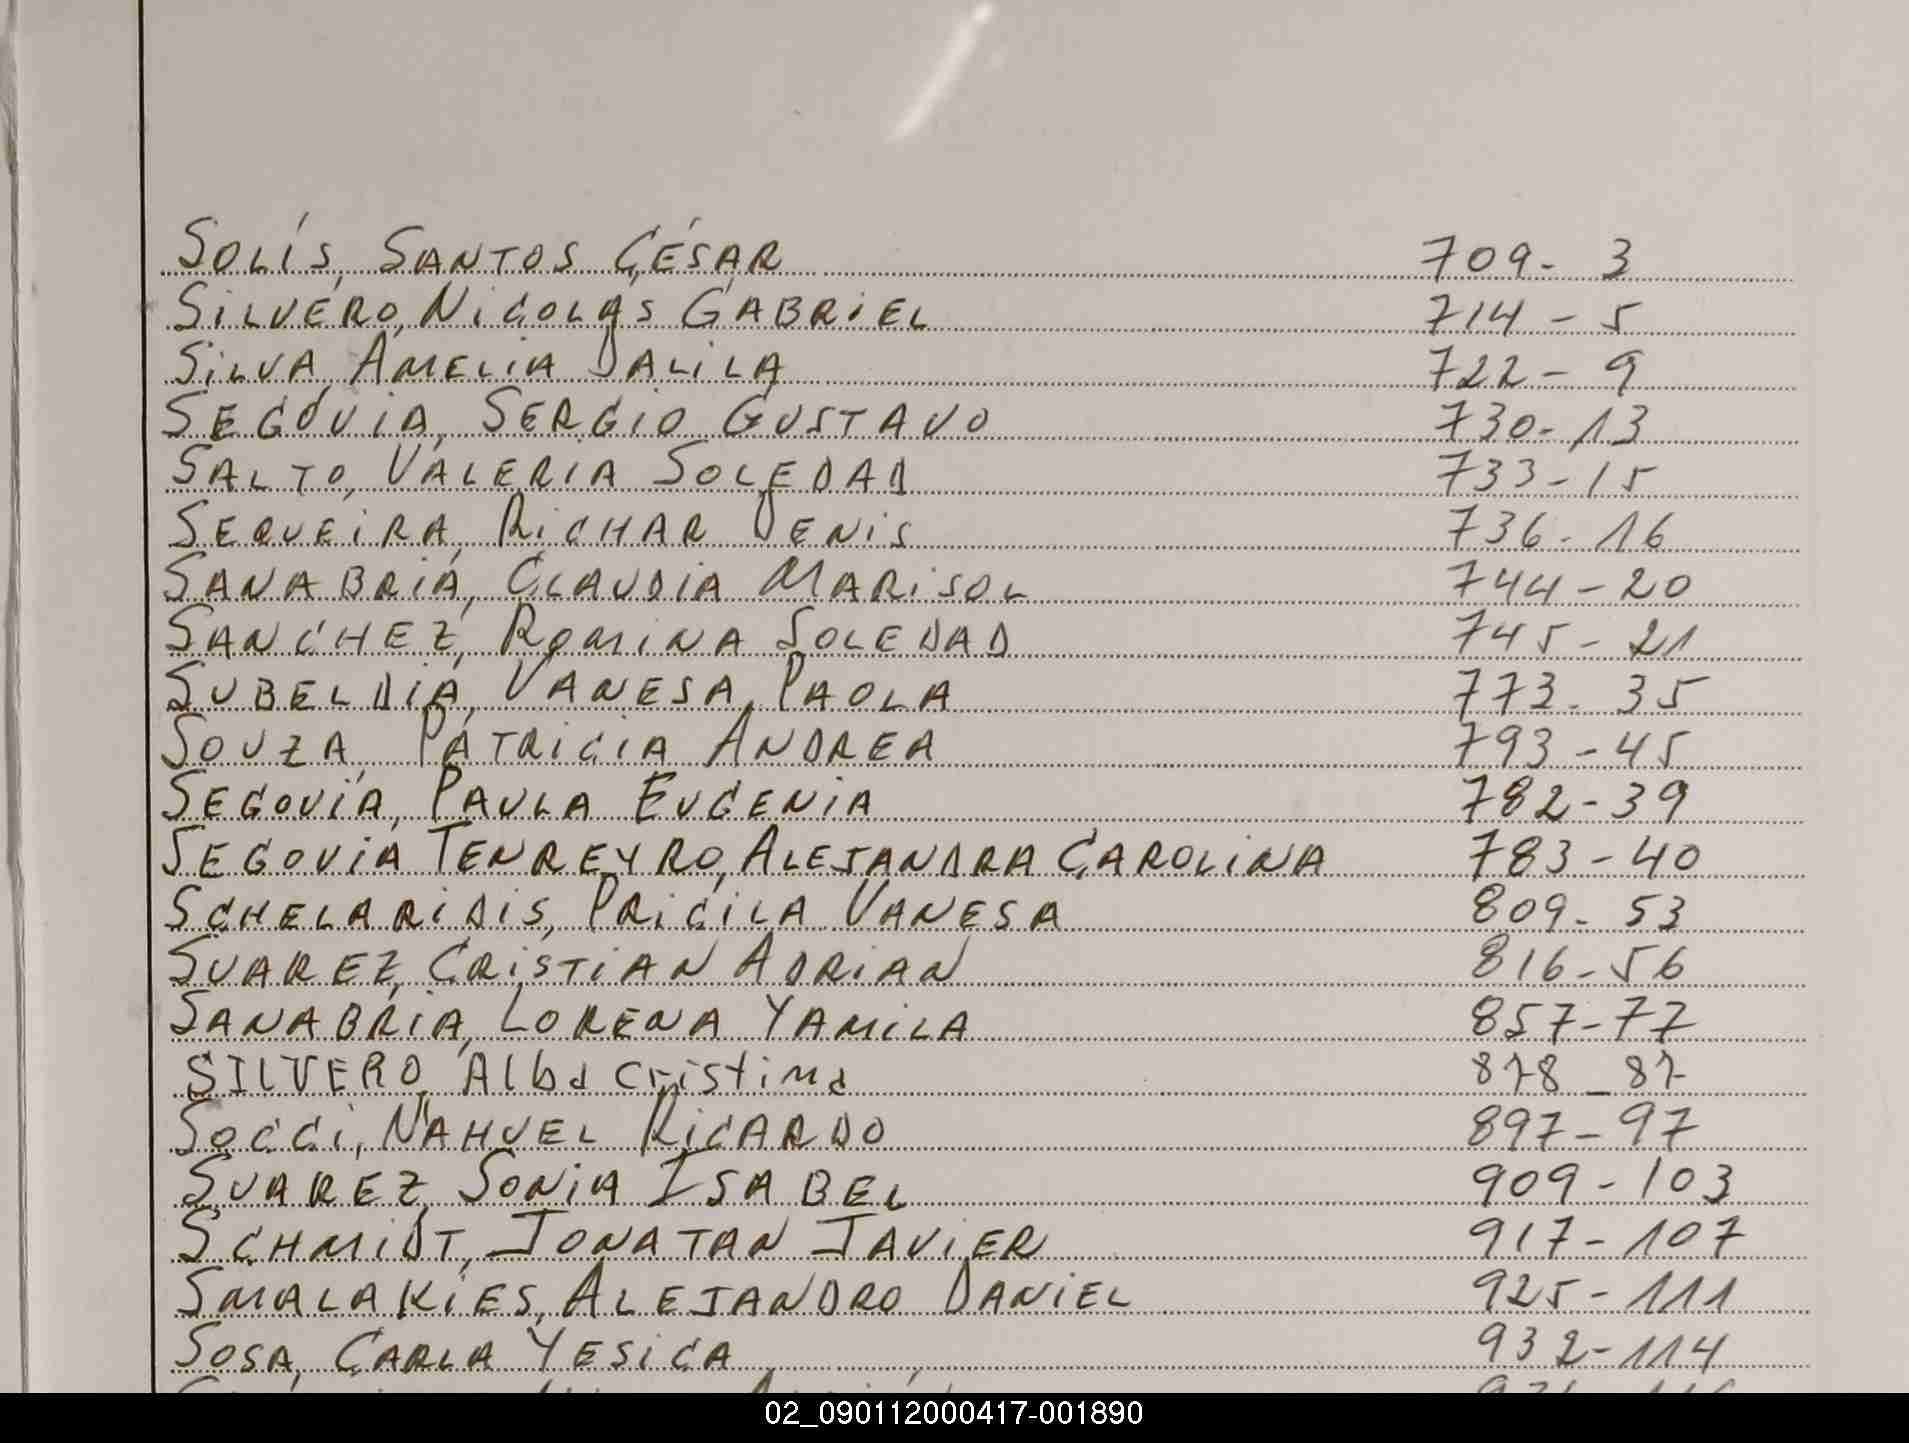 SOLÍS, SANTOS CÉSAR 709- 3
SILVERO, NICOLAS GABRIEL 714 - 5
SILVA, AMELIA DALILA 722 - 9
SEGOVIA, SERGIO GUSTAVO 730- 13
SALTO, VALERIA SOLEDAD 733 - 15
SEQUEIRA, RICHAR DENIS 736 - 16
SANABRIA, CLAUDIA MARISOL 744 - 20
SANCHEZ, ROMINA SOLEDAD 745 - 21
SUBELDIA, VANESA PAOLA 773 - 35
SOUZA, PATRICIA ANDREA 793 - 45
SEGOVIA, PAULA EUGENIA 782 - 39
SEGOVIA TENREYRO, ALEJANDRA CAROLINA 783 - 40
SCHELARIDIS, PRICILA VANESA 809 - 53
SUAREZ, CRISTIAN ADRIAN 816 - 56
SANABRIA, LORENA YAMILA 857 - 77
SILVERO, Alba Cristina 878 - 87
SOCCI, NAHUEL RICARDO 897 - 97
SUAREZ, SONIA ISABEL 909 - 103
SCHMIDT, JONATAN JAVIER 917 - 107
SMALAKIES, ALEJANDRO DANIEL 925 - 111
SOSA, CARLA YESICA 932 - 114
02_090112000417-001890